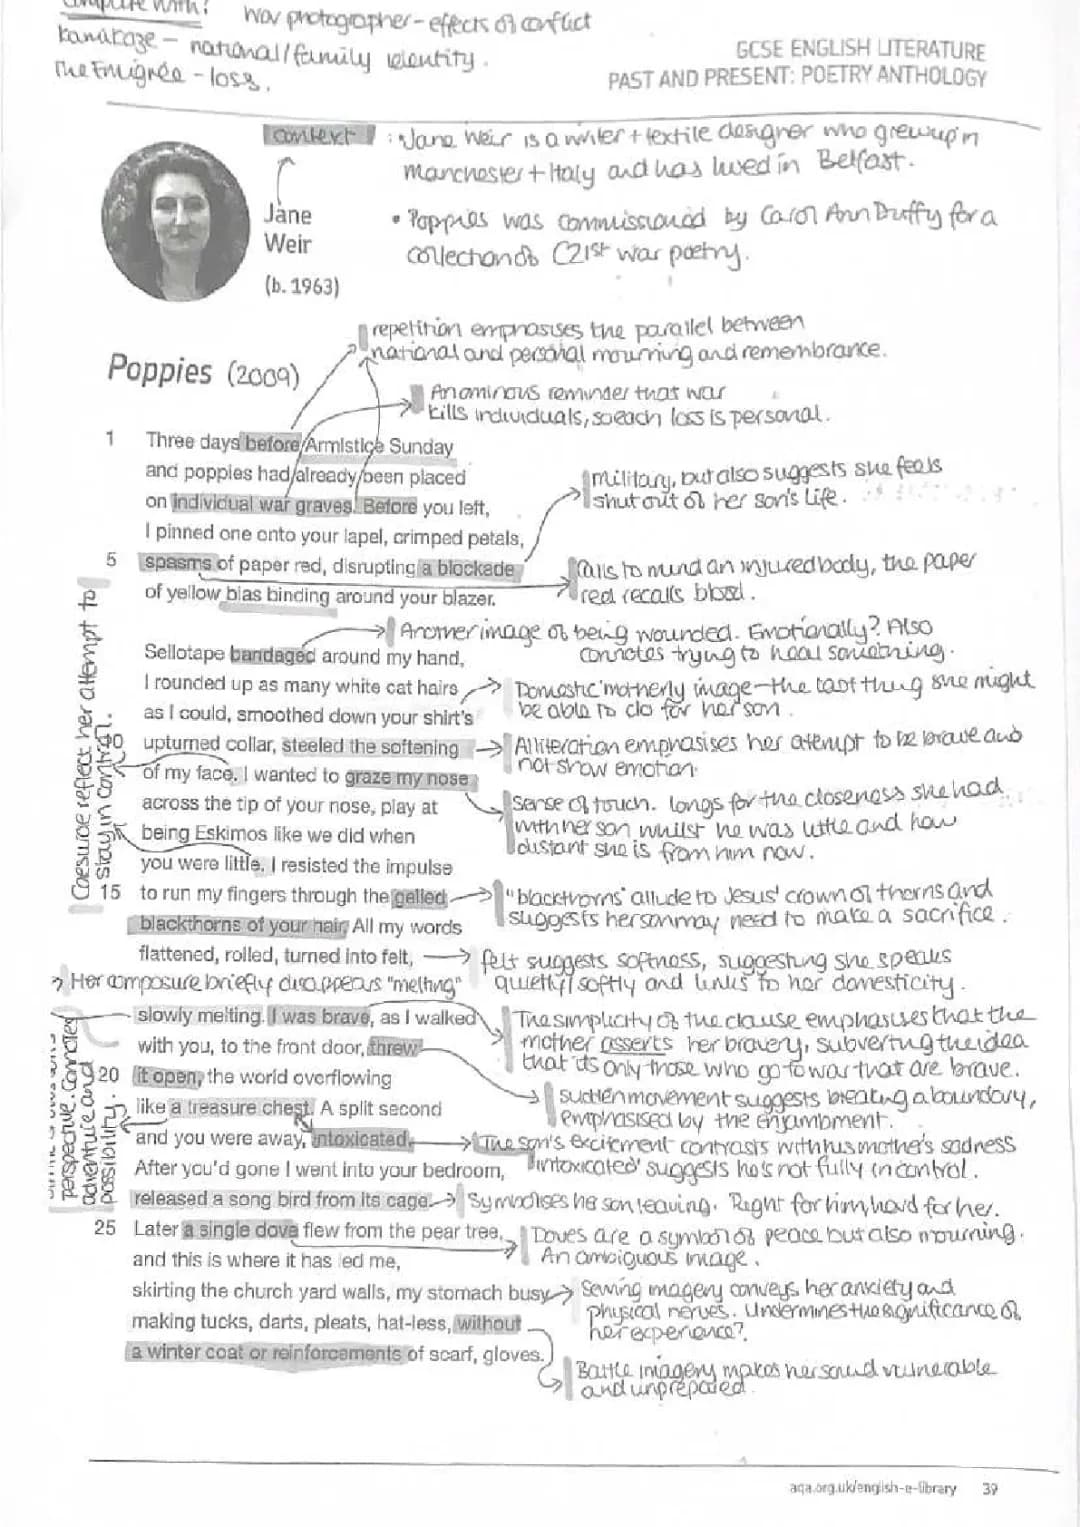 compare with:
War photographer - effects of conflict
Kamakaze - national/family identity.
The Emigrée - loss.
GCSE ENGLISH LITERATURE
PAST AND PRESENT: POETRY ANTHOLOGY
context
: Jane Weir is a writer + textile designer who grew up in
Manchester + Italy and has lived in Belfast.
Jane
Weir
(b. 1963)
• Poppies was commissioned by Carol Ann Duffy for a
collection of C21st war poetry.
repetition emphasises the parallel between
national and personal mourning and remembrance.
Poppies (2009)
An ominous reminder that war
kills individuals, so each loss is personal.
1 Three days before Armistice Sunday
and poppies had already been placed
on individual war graves. Before you left,
I pinned one onto your lapel, crimped petals,
5 spasms of paper red, disrupting a blockade
of yellow bias binding around your blazer.
military, but also suggests she feels
shut out of her son's life.
Calls to mind an injured body, the paper
red recalls blood.
Another image of being wounded. Emotionally? Also
connotes trying to heal something.
Sellotape bandaged around my hand,
I rounded up as many white cat hairs
as I could, smoothed down your shirt's
10 upturned collar, steeled the softening
of my face. I wanted to graze my nose
across the tip of your nose, play at
being Eskimos like we did when
you were little. I resisted the impulse
15 to run my fingers through the gelled
blackthorns of your hair. All my words
flattened, rolled, turned into felt,
Domestic 'motherly image - the last thing she might
be able to do for her son.
Alliteration emphasises her attempt to be brave and
not show emotion.
Sense of touch. longs for the closeness she had
with her son whilst he was little and how
distant she is from him now.
"blackthorns' allude to Jesus' crown of thorns and
suggests her son may need to make a sacrifice.
felt suggests softness, suggesting she speaks
quietly/softly and links to her domesticity.
Caesurae reflect her attempt to
stay in control.
Her composure briefly disappears "melting"
slowly melting. I was brave, as I walked
with you, to the front door, threw
20 it open, the world overflowing
like a treasure chest. A split second
and you were away, intoxicated.
After you'd gone I went into your bedroom,
released a song bird from its cage.
25 Later a single dove flew from the pear tree,
and this is where it has led me,
skirting the church yard walls, my stomach busy
making tucks, darts, pleats, hat-less, without
a winter coat or reinforcements of scarf, gloves.
The simplicity of the clause emphasises that the
mother asserts her bravery, subverting the idea
that its only those who go to war that are brave.
sudden movement suggests breaking a boundary,
emphasised by the enjambment.
The son's excitement contrasts with his mother's sadness
'intoxicated' suggests he's not fully in control.
Symbolises her son leaving. Right for him, hard for her.
Doves are a symbol of peace but also mourning.
An ambiguous image.
Sewing imagery conveys her anxiety and
physical nerves. Undermines the significance of
her experience?
Battle imagery makes her sound vulnerable
and unprepared.
perspective.
adventure and
possibility.
aqa.org.uk/english-e-library 39